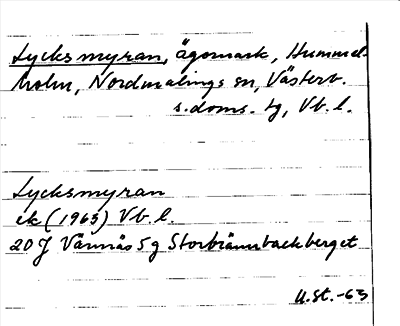 Lycksmyran, ägomark, Hummel-
holm, Nordmalings sn, Västerb.
s. doms. tg, Vb. l.
Lycksmyran
ek (1963) Vb. l.
20 J Vännäs 5 g Storbrännbackberget
U.St. -63